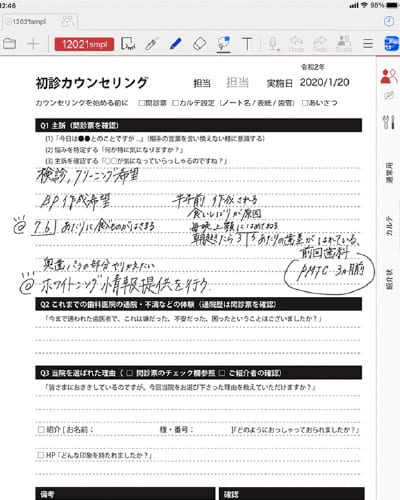 12:46
98%
12021smpl
12021smpl
Undo Redo Share
令和2年
初診カウンセリング 担当 担当 実施日 2020/1/20
カウンセリングを始める前に □問診票 □カルテ設定（ノート名 / 表紙 / 歯管） □あいさつ
Q1 主訴（問診票を確認）
(1)「今日は●●とのことですが…」（相手の言葉を言い換えない様に意識する）
(2) 悩みを特定する「何が特に気になりますか？」
(3) 主訴を確認する「○○が気になっていらっしゃるのですね？」
検診、クリーニング希望
BP作成希望 半年前 作成される
食いしばりが原因
@ 7.6 あたりに食べものがはさまる
毎晩上顎にはめてねる
朝起きたら 3 3 あたりの歯茎がはれている、
前回歯科
PMTC 3ヵ月前
奥歯 の部分やりかえたい
@ ホワイトニング情報提供を行う.
Q2 これまでの歯科医院の通院・不満などの体験（通院歴は問診票を確認）
「今まで通われた歯医者で、これは嫌だった、不安だった、困ったということはございましたか？」
Q3 当院を選ばれた理由（ □ 問診票のチェック欄参照 □ ご紹介者の確認）
「皆さまにおききしているのですが、今回当院をお選び下さった理由を教えていただけますか？」
□ 紹介 [ お名前： 様・番号： ]「どのようにおっしゃっておられましたか？」
□ HP「どんな印象を持たれましたか？」
備考 確認
通常用
カルテ
紹介状